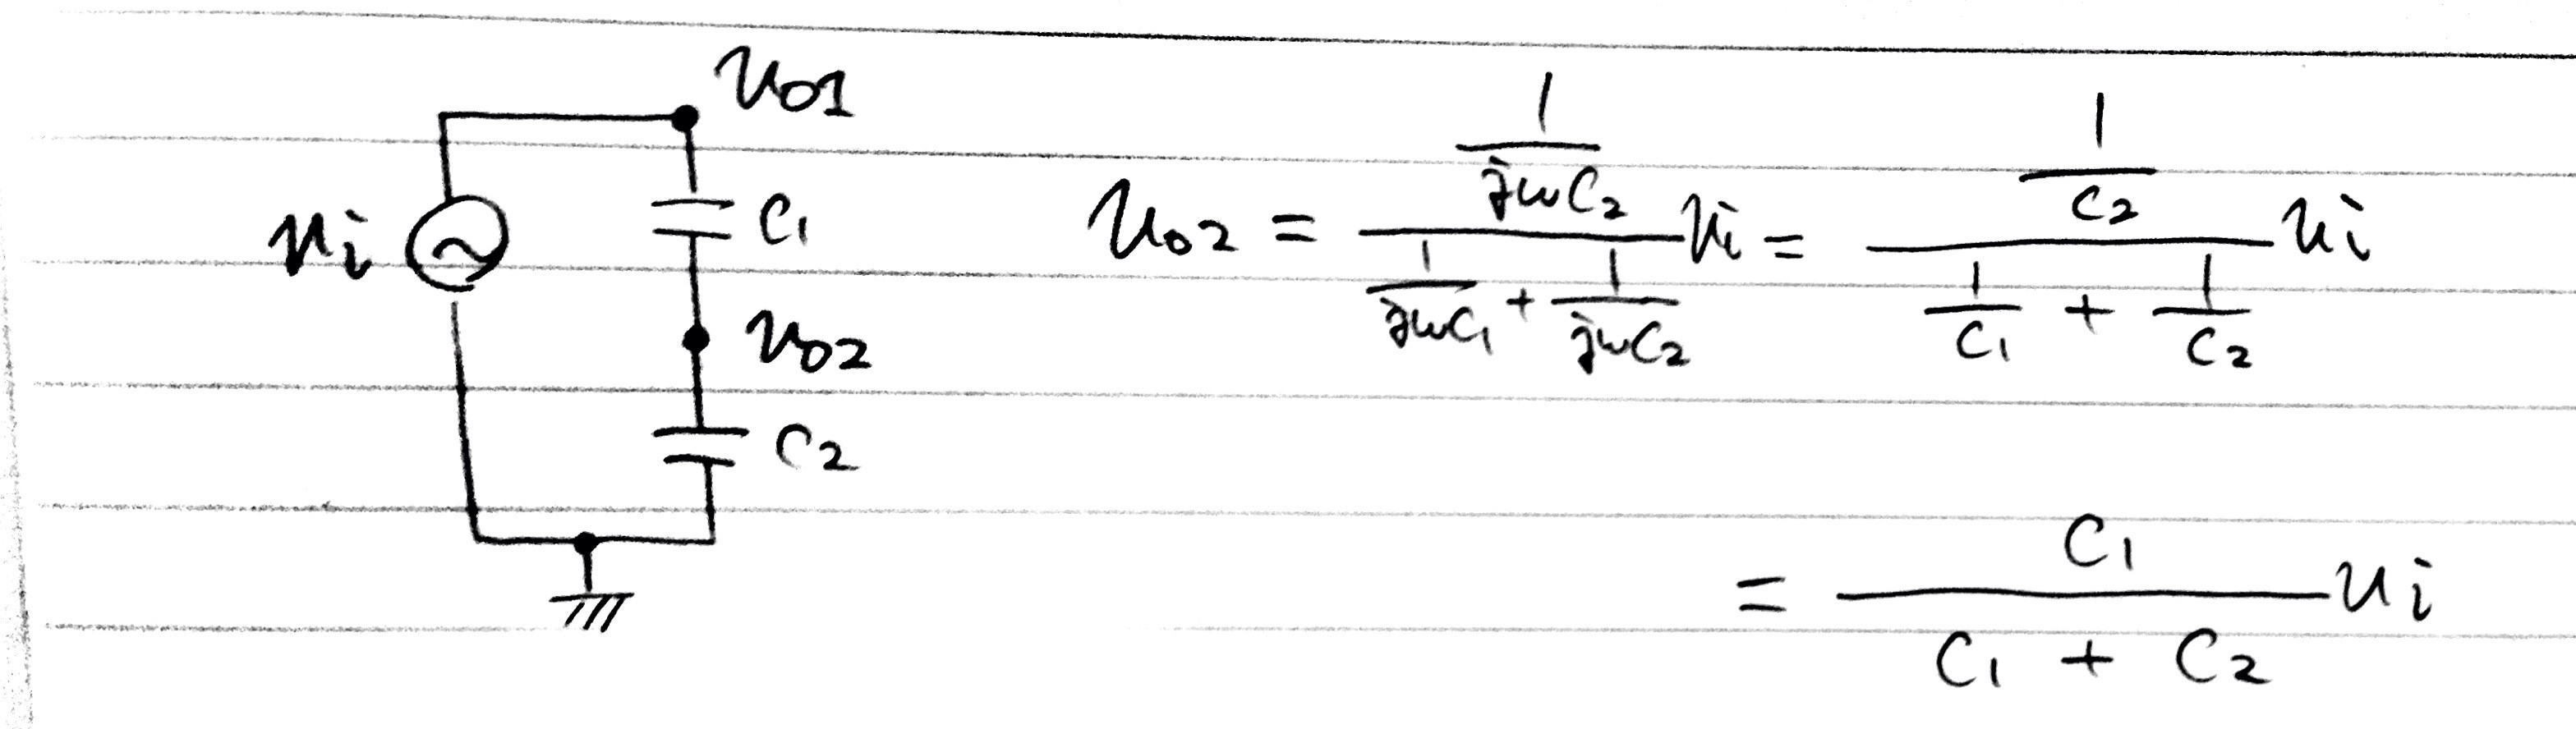 v01
vi
C1
v02
C2
v02 = \frac{\frac{1}{jωC2}}{\frac{1}{jωC1} + \frac{1}{jωC2}} vi = \frac{\frac{1}{C2}}{\frac{1}{C1} + \frac{1}{C2}} vi
= \frac{C1}{C1 + C2} vi